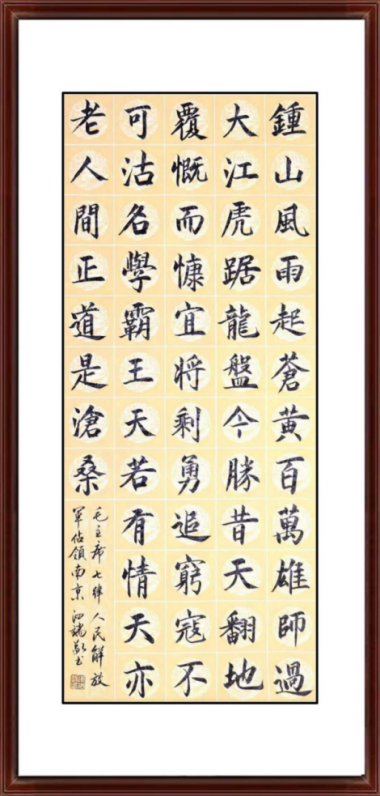 鍾山風雨起蒼黃百萬雄師過
大江虎踞龍盤今勝昔天翻地
覆慨而慷宜將剩勇追窮寇不
可沽名學霸王天若有情天亦
老人間正道是滄桑
毛主席七律人民解放
軍佔領南京